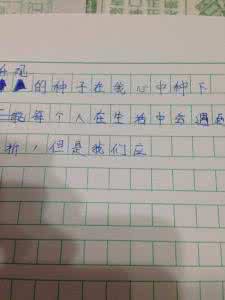 的种子在我心中种下
每个人在生活中会遇
折，但是我们应